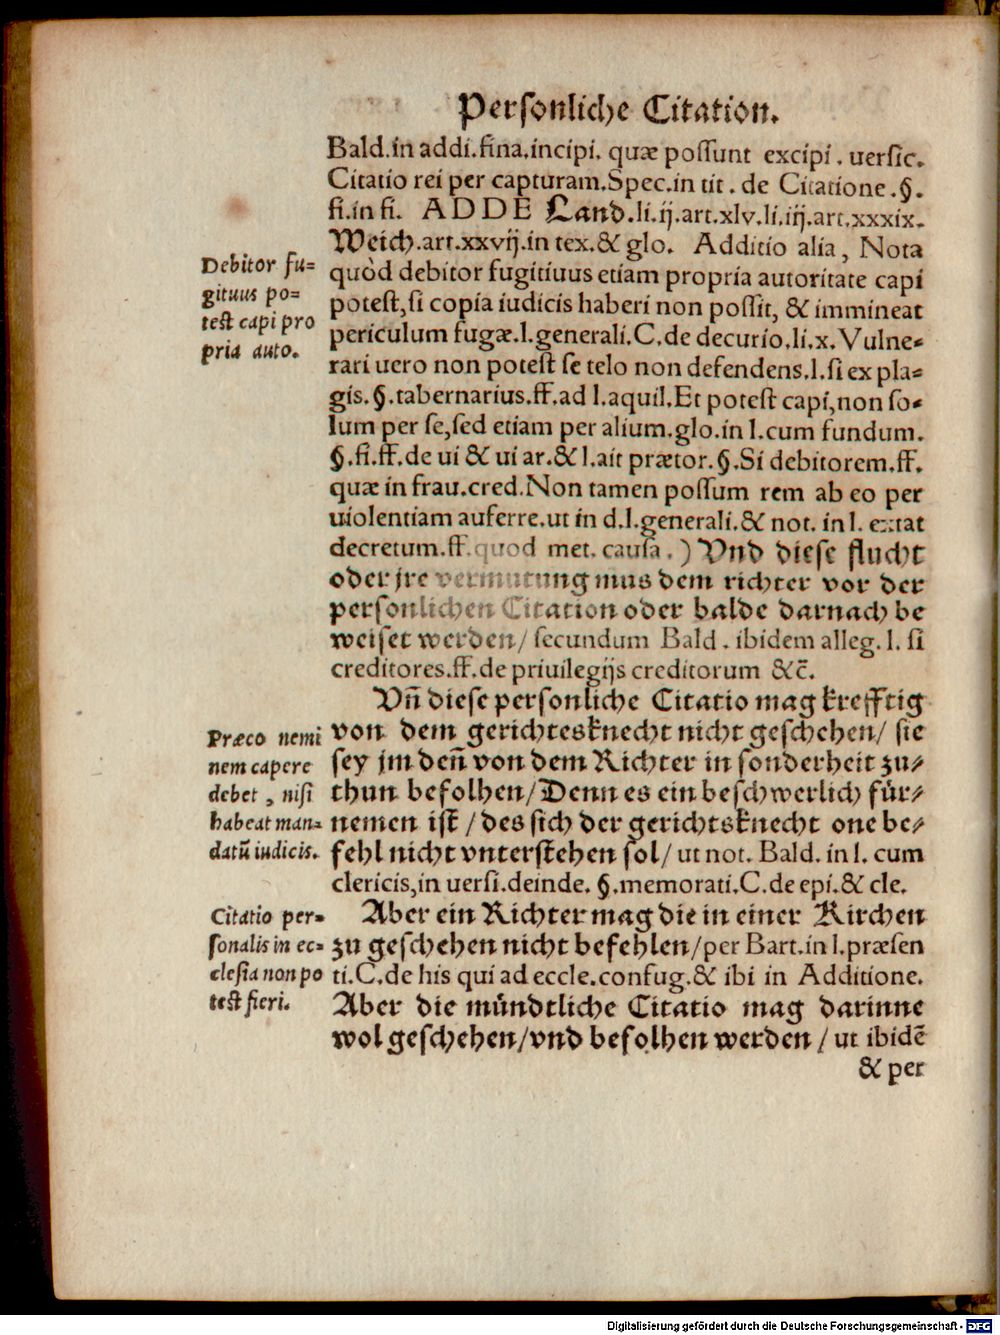 Personliche Citation.
Bald.in addi.fina.incipi. quæ possunt excipi. uersic.
Citatio rei per capturam.Spec.in tit. de Citatione.§.
fi.in fi. ADDE Land.li.ij.art.xlv.li.iij.art.xxxix.
Weich.art.xxvij.in tex.& glo. Additio alia, Nota
quòd debitor fugitiuus etiam propria autoritate capi
potest,si copia iudicis haberi non possit, & immineat
periculum fugæ.l.generali.C.de decurio.li.x.Vulne-
rari uero non potest se telo non defendens.l.si ex pla-
gis.§.tabernarius.ff.ad l.aquil.Et potest capi,non so-
lum per se,sed etiam per alium.glo.in l.cum fundum.
§.fi.ff.de ui & ui ar.& l.ait prætor.§.Si debitorem.ff.
quæ in frau.cred.Non tamen possum rem ab eo per
uiolentiam auferre.ut in d.l.generali.& not. in l. extat
decretum.ff.quod met. causa.) Vnd diese flucht
oder jre vermutung mus dem richter vor der
personlichen Citation oder balde darnach be
weiset werden/ secundum Bald. ibidem alleg. l. si
creditores.ff.de priuilegijs creditorum &c̃.
Vñ diese personliche Citatio mag krefftig
von dem gerichtesknecht nicht geschehen/ sie
sey jm deñ von dem Richter in sonderheit zu-
thun befolhen/Denn es ein beschwerlich fůr-
nemen ist/des sich der gerichtsknecht one be-
fehl nicht vnterstehen sol/ ut not. Bald. in l. cum
clericis,in uersi.deinde. §.memorati.C.de epi.& cle.
Aber ein Richter mag die in einer Kirchen
zu geschehen nicht befehlen/per Bart.in l.præsen
ti.C.de his qui ad eccle.confug.& ibi in Additione.
Aber die můndtliche Citatio mag darinne
wol geschehen/vnd befolhen werden/ ut ibidẽ
& per
Debitor fu-
gituus po-
test capi pro
pria auto.
Præco nemi
nem capere
debet, nisi
habeat man-
datũ iudicis.
Citatio per-
sonalis in ec-
clesia non po
test fieri.
Digitalisierung gefördert durch die Deutsche Forschungsgemeinschaft - DFG